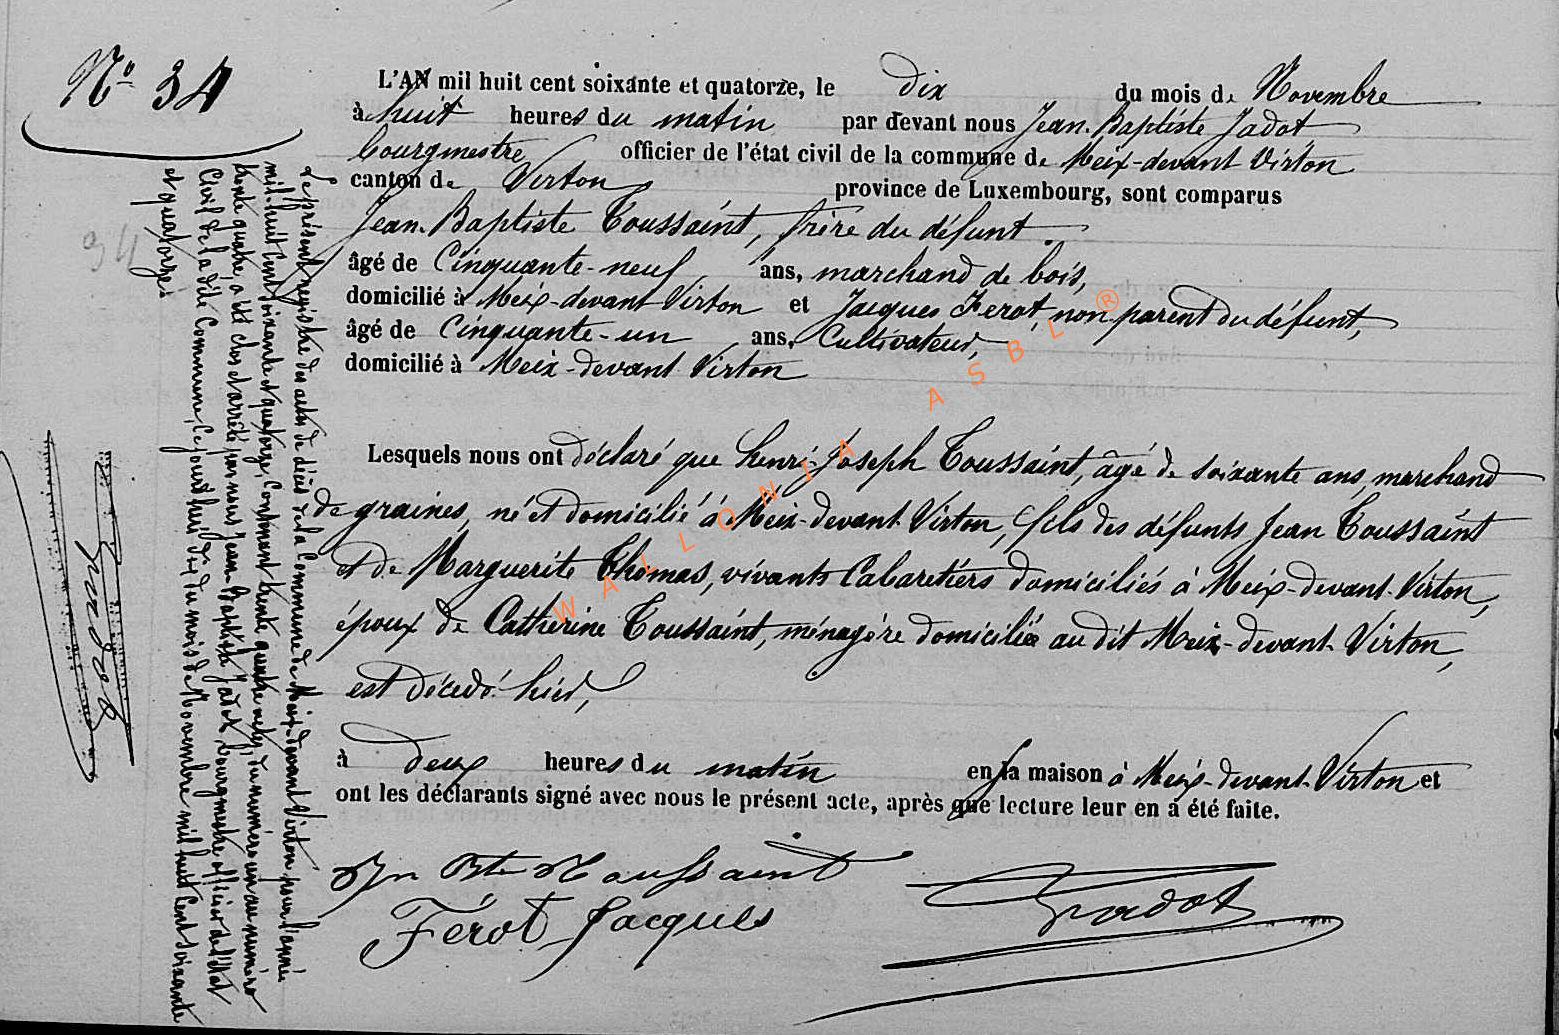 N° 34
L'AN mil huit cent soixante et quatorze, le dix du mois de Novembre
à huit heures du matin par devant nous Jean-Baptiste Jadot
bourgmestre officier de l'état civil de la commune de Meix-devant Virton
canton de Virton province de Luxembourg, sont comparus
Jean-Baptiste Toussaint, frère du défunt
âgé de Cinquante-neuf ans, marchand de bois,
domicilié à Meix-devant Virton et Jacques Ferot, non parent du défunt,
âgé de Cinquante-un ans, Cultivateur,
domicilié à Meix-devant Virton
Lesquels nous ont déclaré que henri-Joseph Toussaint, âgé de soixante ans, marchand
de graines, né et domicilié à Meix-devant-Virton, fils des défunts Jean Toussaint
et de Marguerite Thomas, vivants Cabaretiers domiciliés à Meix-devant-Virton,
époux de Catherine Toussaint, ménagère domiciliée au dit Meix-devant-Virton,
est décédé hier,
à deux heures du matin en sa maison à Meix-devant-Virton et
ont les déclarants signé avec nous le présent acte, après que lecture leur en a été faite.
Jn Bte Toussaint
Férot Jacques
Jadot
Le présent registre des actes de décès de la Commune de Meix-devant Virton, pour l'année
mil-huit Cent soixante et quatorze, Contenant trente quatre actes, du numéro un au numéro
trente quatre, a été clos et arrêté par nous Jean-Baptiste Jadot, bourgmestre officier de l'État
Civil de la dite Commune, Ce jourd'hui dix du mois de Novembre mil huit Cent soixante
et quatorze.
Jadot
34
WALLONIA ASBL ®